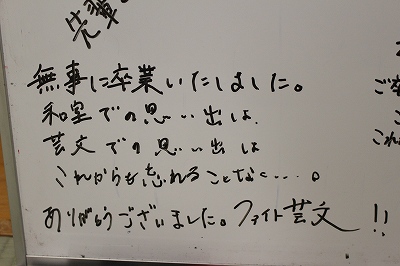 先輩
無事に卒業いたしました。
和室での思い出は、
芸文での思い出は
これからも忘れることなく…。
ありがとうございました。ファイト芸文!!
ご卒
こ
これ